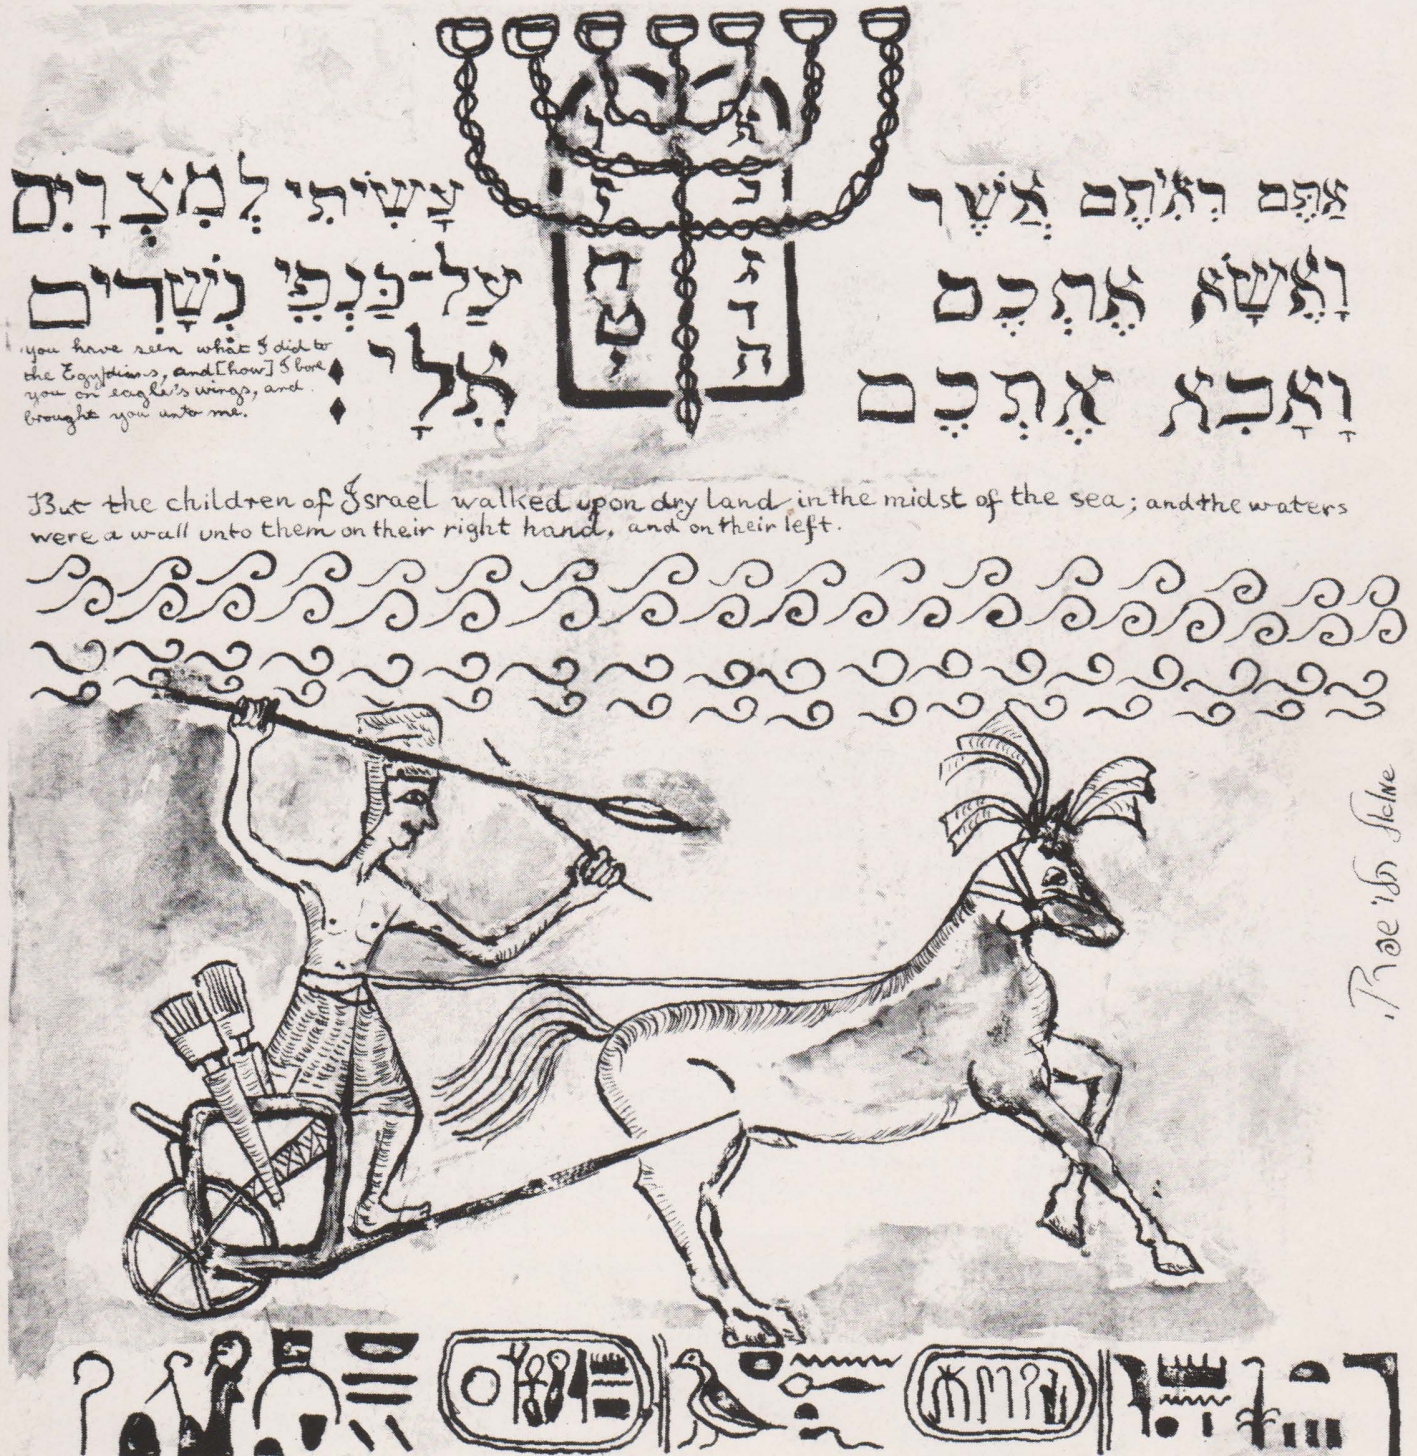 אַתֶּם רְאִיתֶם אֲשֶׁר עָשִׂיתִי לְמִצְרָיִם
וָאֶשָּׂא אֶתְכֶם עַל-כַּנְפֵי נְשָׁרִים
וָאָבִא אֶתְכֶם אֵלָי:
א ו
ב ז
ג ח
ד ט
ה י
you have seen what I did to
the Egyptians, and [how] I bore
you on eagle's wings, and
brought you unto me.
But the children of Israel walked upon dry land in the midst of the sea; and the waters
were a wall unto them on their right hand, and on their left.